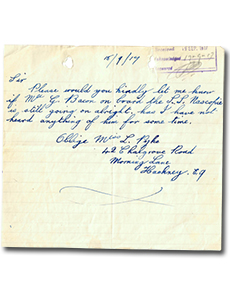 15/9/17
Received
Acknowledged
Answered
Sir
Please would you kindly let me know
if Mr G Bacon on board the S.S. Nascopie
is still going on alright, has I have not
heard anything of him for some time.
Oblige Miss L. Pyke
42 Chalgrove Road
Morning Lane
Hackney. E9